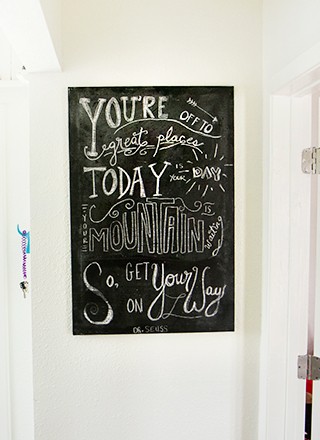 YOU'RE OFF TO
great places
TODAY IS YOUR DAY
YOUR MOUNTAIN IS waiting
So, GET Your
ON Way
DR. SEUSS